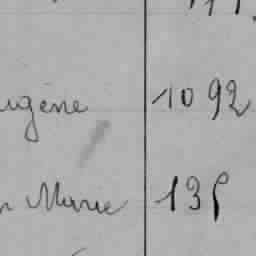 ugène 1092
Marie 135